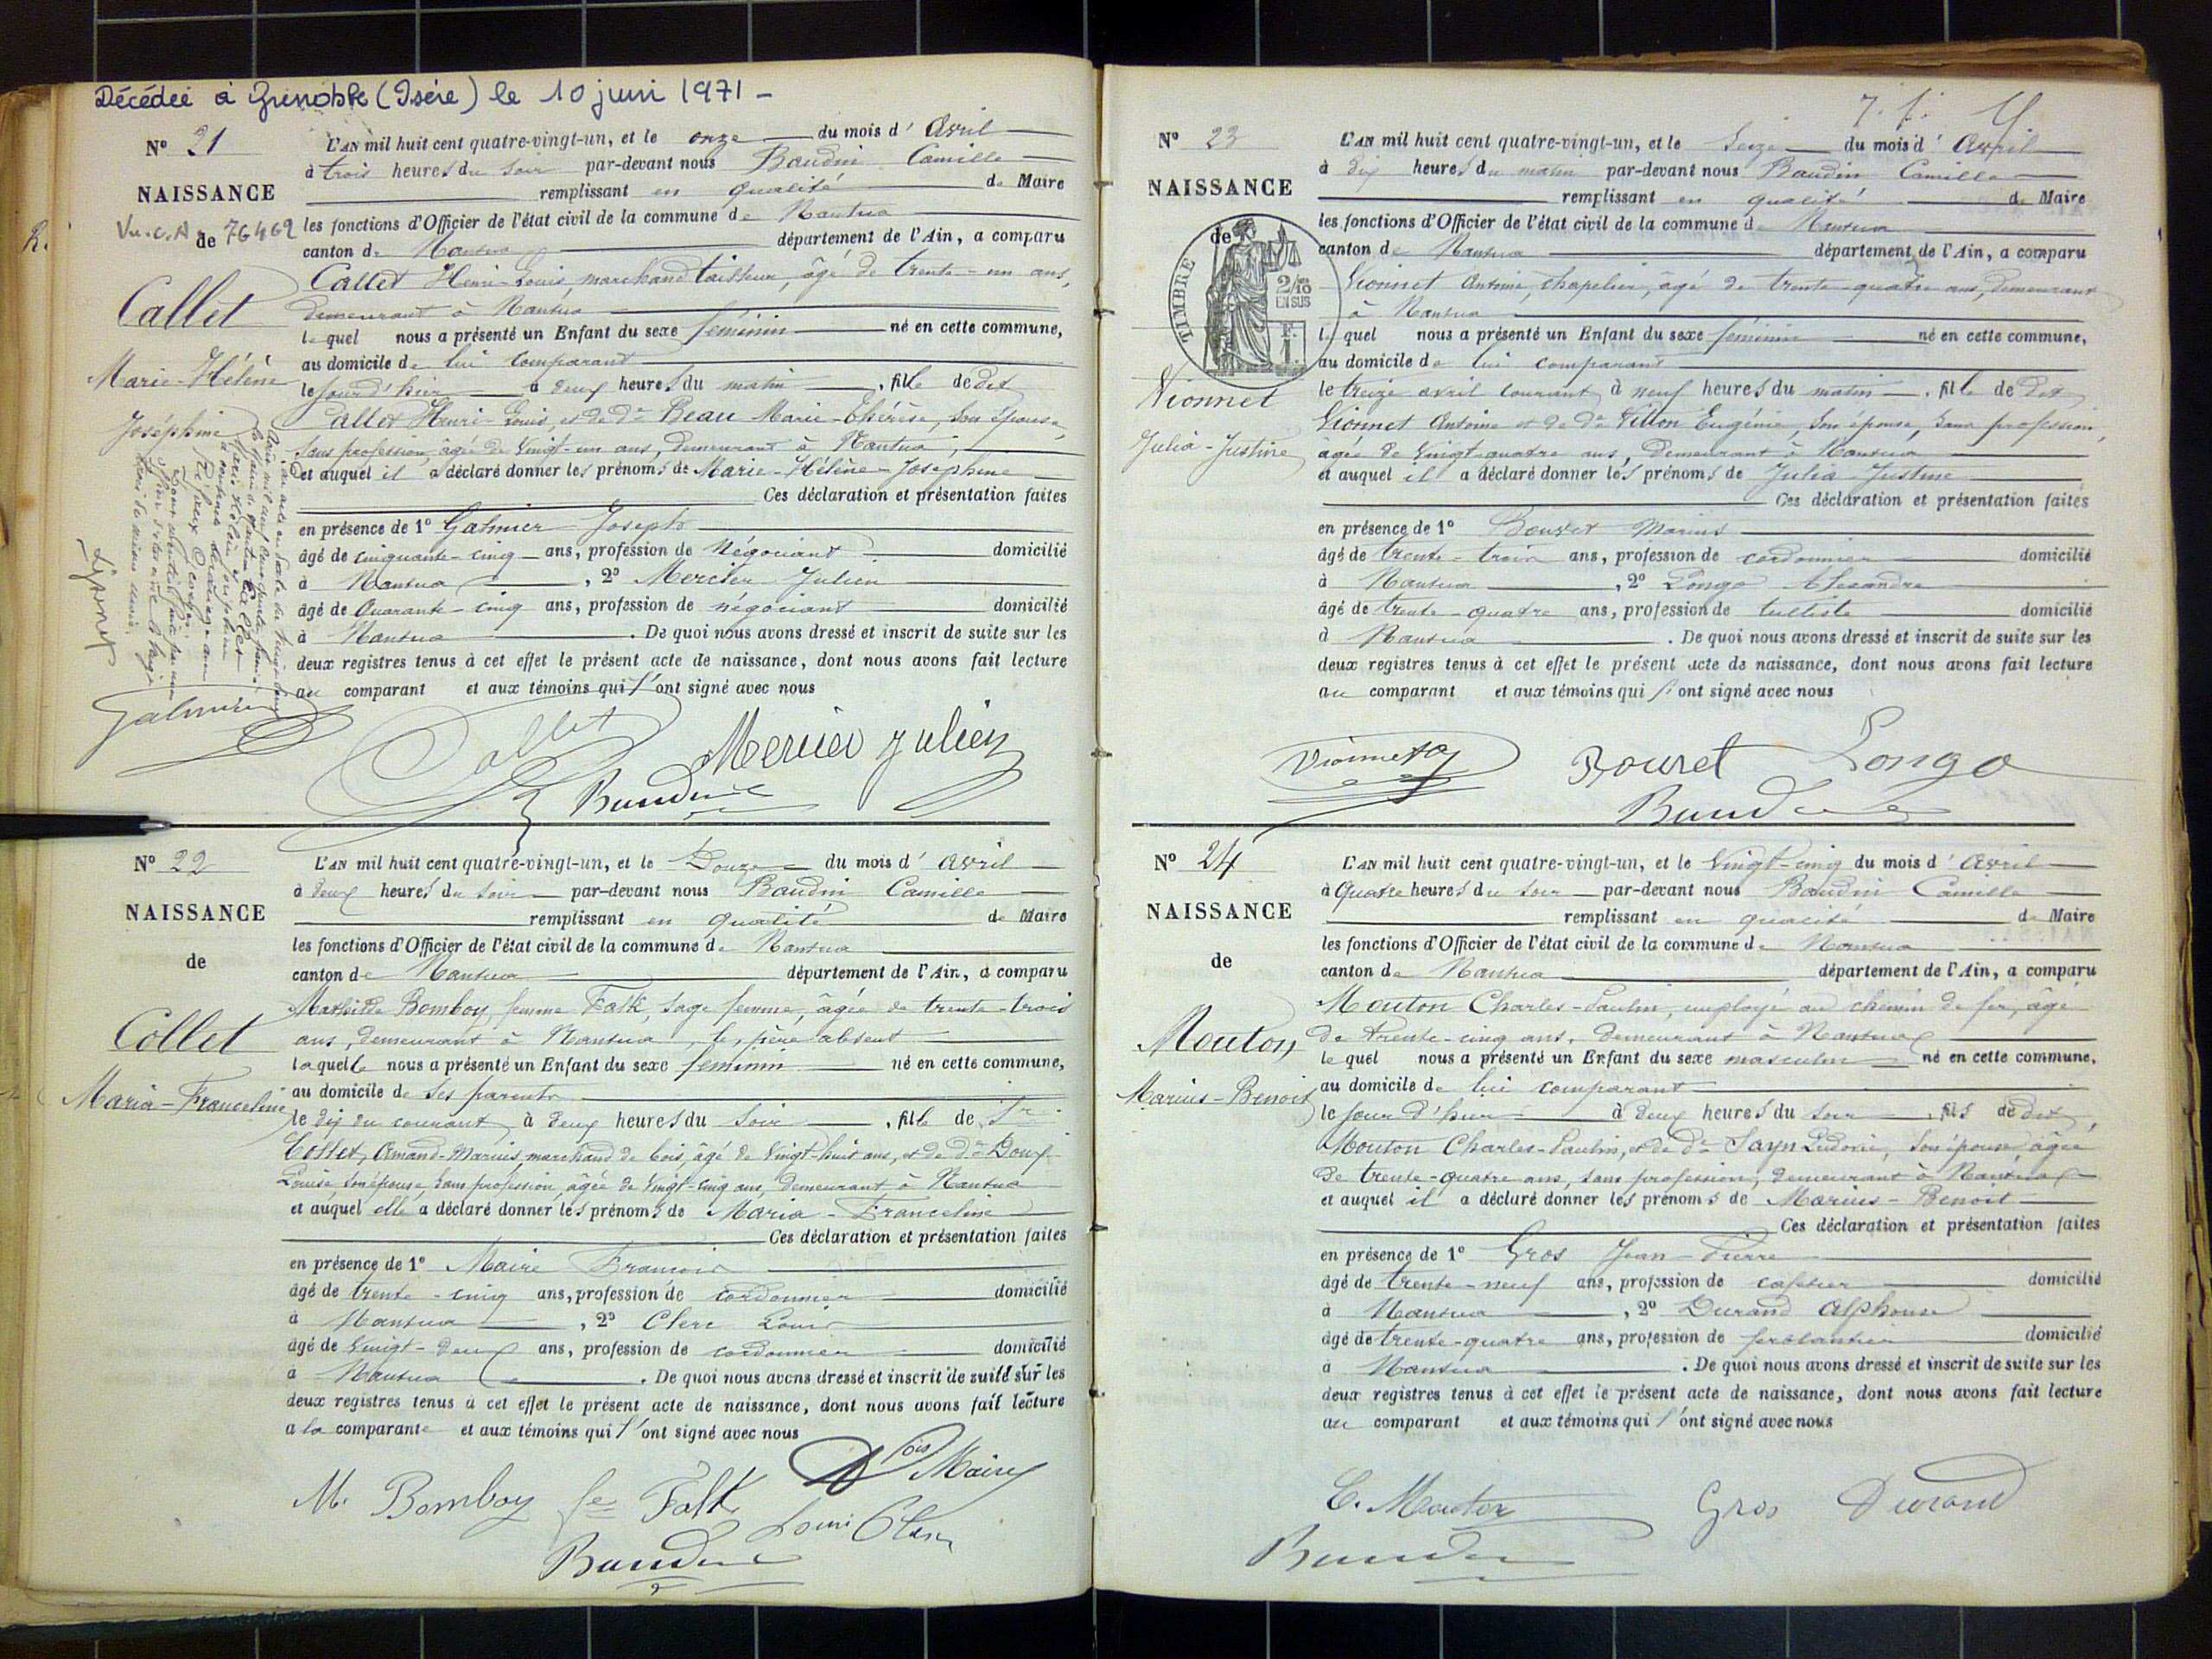 Décédée à Grenoble (Isère) le 10 juin 1971 -
N° 21
NAISSANCE
Vu. c. A de 76469
R.
Callet
Marie-Hélène
Joséphine
L'AN mil huit cent quatre-vingt-un, et le onze du mois d' Avril
à trois heures du soir par-devant nous Baudin Camille
remplissant en qualité de Maire
les fonctions d'Officier de l'état civil de la commune de Nantua
canton de Nantua département de l'Ain, a comparu
Callet Henri-Louis, marchand tailleur, âgé de trente-un ans,
demeurant à Nantua
lequel nous a présenté un Enfant du sexe féminin né en cette commune,
au domicile de lui comparant
le jour d'hier à deux heures du matin, fille de dit
Callet Henri-Louis, et de De Beau Marie-Thérèse, son épouse,
sans profession, âgée de vingt-un ans, demeurant à Nantua,
et auquel il a déclaré donner les prénoms de Marie-Hélène-Joséphine
Ces déclaration et présentation faites
en présence de 1° Galmier Joseph
âgé de cinquante-cinq ans, profession de Négociant domicilié
à Nantua, 2° Mercier Julien
âgé de Quarante-cinq ans, profession de négociant domicilié
à Nantua. De quoi nous avons dressé et inscrit de suite sur les
deux registres tenus à cet effet le présent acte de naissance, dont nous avons fait lecture
au comparant et aux témoins qui l'ont signé avec nous
Galmier
Callet
Mercier Julien
Baudin
N° 22
NAISSANCE
de
Collet
Maria-Franceline
L'AN mil huit cent quatre-vingt-un, et le Douze du mois d' Avril
à deux heures du soir par-devant nous Baudin Camille
remplissant en qualité de Maire
les fonctions d'Officier de l'état civil de la commune de Nantua
canton de Nantua département de l'Ain, a comparu
Mathilde Bomboy femme Falk, sage femme, âgée de trente-trois
ans, demeurant à Nantua, le père absent
laquelle nous a présenté un Enfant du sexe féminin né en cette commune,
au domicile de ses parents
le dix du courant à deux heures du soir, fille de Sr
Collet, Amand-Marius, marchand de bois, âgé de vingt-huit ans, et de De
Louise son épouse, sans profession, âgée de vingt-cinq ans, demeurant à Nantua
et auquel elle a déclaré donner les prénoms de Maria-Franceline
Ces déclaration et présentation faites
en présence de 1° Maire François
âgé de trente-cinq ans, profession de cordonnier domicilié
à Nantua, 2° Clerc Louis
âgé de vingt-deux ans, profession de cordonnier domicilié
à Nantua. De quoi nous avons dressé et inscrit de suite sur les
deux registres tenus à cet effet le présent acte de naissance, dont nous avons fait lecture
a la comparante et aux témoins qui l'ont signé avec nous
Fois Maire
M. Bomboy fe Falk
Louis Clerc
Baudin
N° 23
NAISSANCE
de
TIMBRE
2/10
EN SUS
F.
1.
Vionnet
Julia-Justine
L'AN mil huit cent quatre-vingt-un, et le Seize du mois d' Avril
à dix heures du matin par-devant nous Baudin Camille
remplissant en qualité de Maire
les fonctions d'Officier de l'état civil de la commune de Nantua
canton de Nantua département de l'Ain, a comparu
Vionnet Antoine, chapelier, âgé de trente-quatre ans, demeurant
à Nantua
lequel nous a présenté un Enfant du sexe féminin né en cette commune,
au domicile de lui comparant
le treize avril courant à neuf heures du matin, fille de dit
Vionnet Antoine et de De Eugénie, son épouse, sans profession,
âgée de vingt-quatre ans, demeurant à Nantua
et auquel il a déclaré donner les prénoms de Julia Justine
Ces déclaration et présentation faites
en présence de 1° Bouvet Marius
âgé de trente-trois ans, profession de cordonnier domicilié
à Nantua, 2° Longo Alexandre
âgé de trente-quatre ans, profession de tulliste domicilié
à Nantua. De quoi nous avons dressé et inscrit de suite sur les
deux registres tenus à cet effet le présent acte de naissance, dont nous avons fait lecture
au comparant et aux témoins qui l'ont signé avec nous
Vionnet
Longo
Baudin
N° 24
NAISSANCE
de
Mouton
Marius-Benoit
L'AN mil huit cent quatre-vingt-un, et le Vingt-cinq du mois d' Avril
à Quatre heures du soir par-devant nous Baudin Camille
remplissant en qualité de Maire
les fonctions d'Officier de l'état civil de la commune de Nantua
canton de Nantua département de l'Ain, a comparu
Mouton Charles-Paulin, employé au chemin de fer, âgé
de trente-cinq ans, demeurant à Nantua
lequel nous a présenté un Enfant du sexe masculin né en cette commune,
au domicile de lui comparant
le jour d'hier à deux heures du soir, fils de dit
Mouton Charles-Paulin, et de De Sayn Ludovie, son épouse, âgée
de trente-quatre ans, sans profession, demeurant à Nantua
et auquel il a déclaré donner les prénoms de Marius-Benoit
Ces déclaration et présentation faites
en présence de 1° Gros Jean-Pierre
âgé de trente-neuf ans, profession de cafetier domicilié
à Nantua, 2° Durand Alphonse
âgé de trente-quatre ans, profession de ferblantier domicilié
à Nantua. De quoi nous avons dressé et inscrit de suite sur les
deux registres tenus à cet effet le présent acte de naissance, dont nous avons fait lecture
au comparant et aux témoins qui l'ont signé avec nous
C. Mouton
Gros
Durand
Baudin